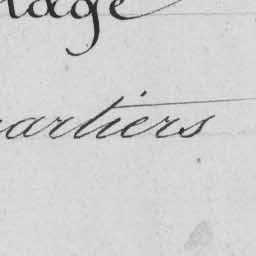 lage
uartiers